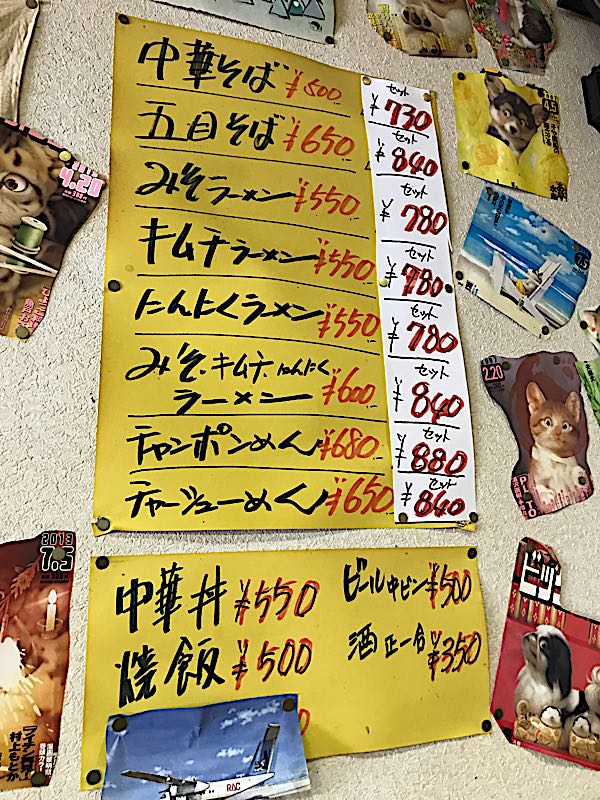 中華そば ¥500 セット ¥730
五目そば ¥650 セット ¥840
みそラーメン ¥550 セット ¥780
キムチラーメン ¥550 セット ¥780
にんにくラーメン ¥550 セット ¥780
みそ・キムチにんにく
ラーメン ¥600 セット ¥840
チャンポンめん ¥680 セット ¥880
チャーシューめん ¥650 セット ¥840
中華丼 ¥550 ビール中ビン ¥500
焼飯 ¥500 酒正一合 ¥350
4.20
4.5
2.20
2013
7.5
村上もとか
RAC